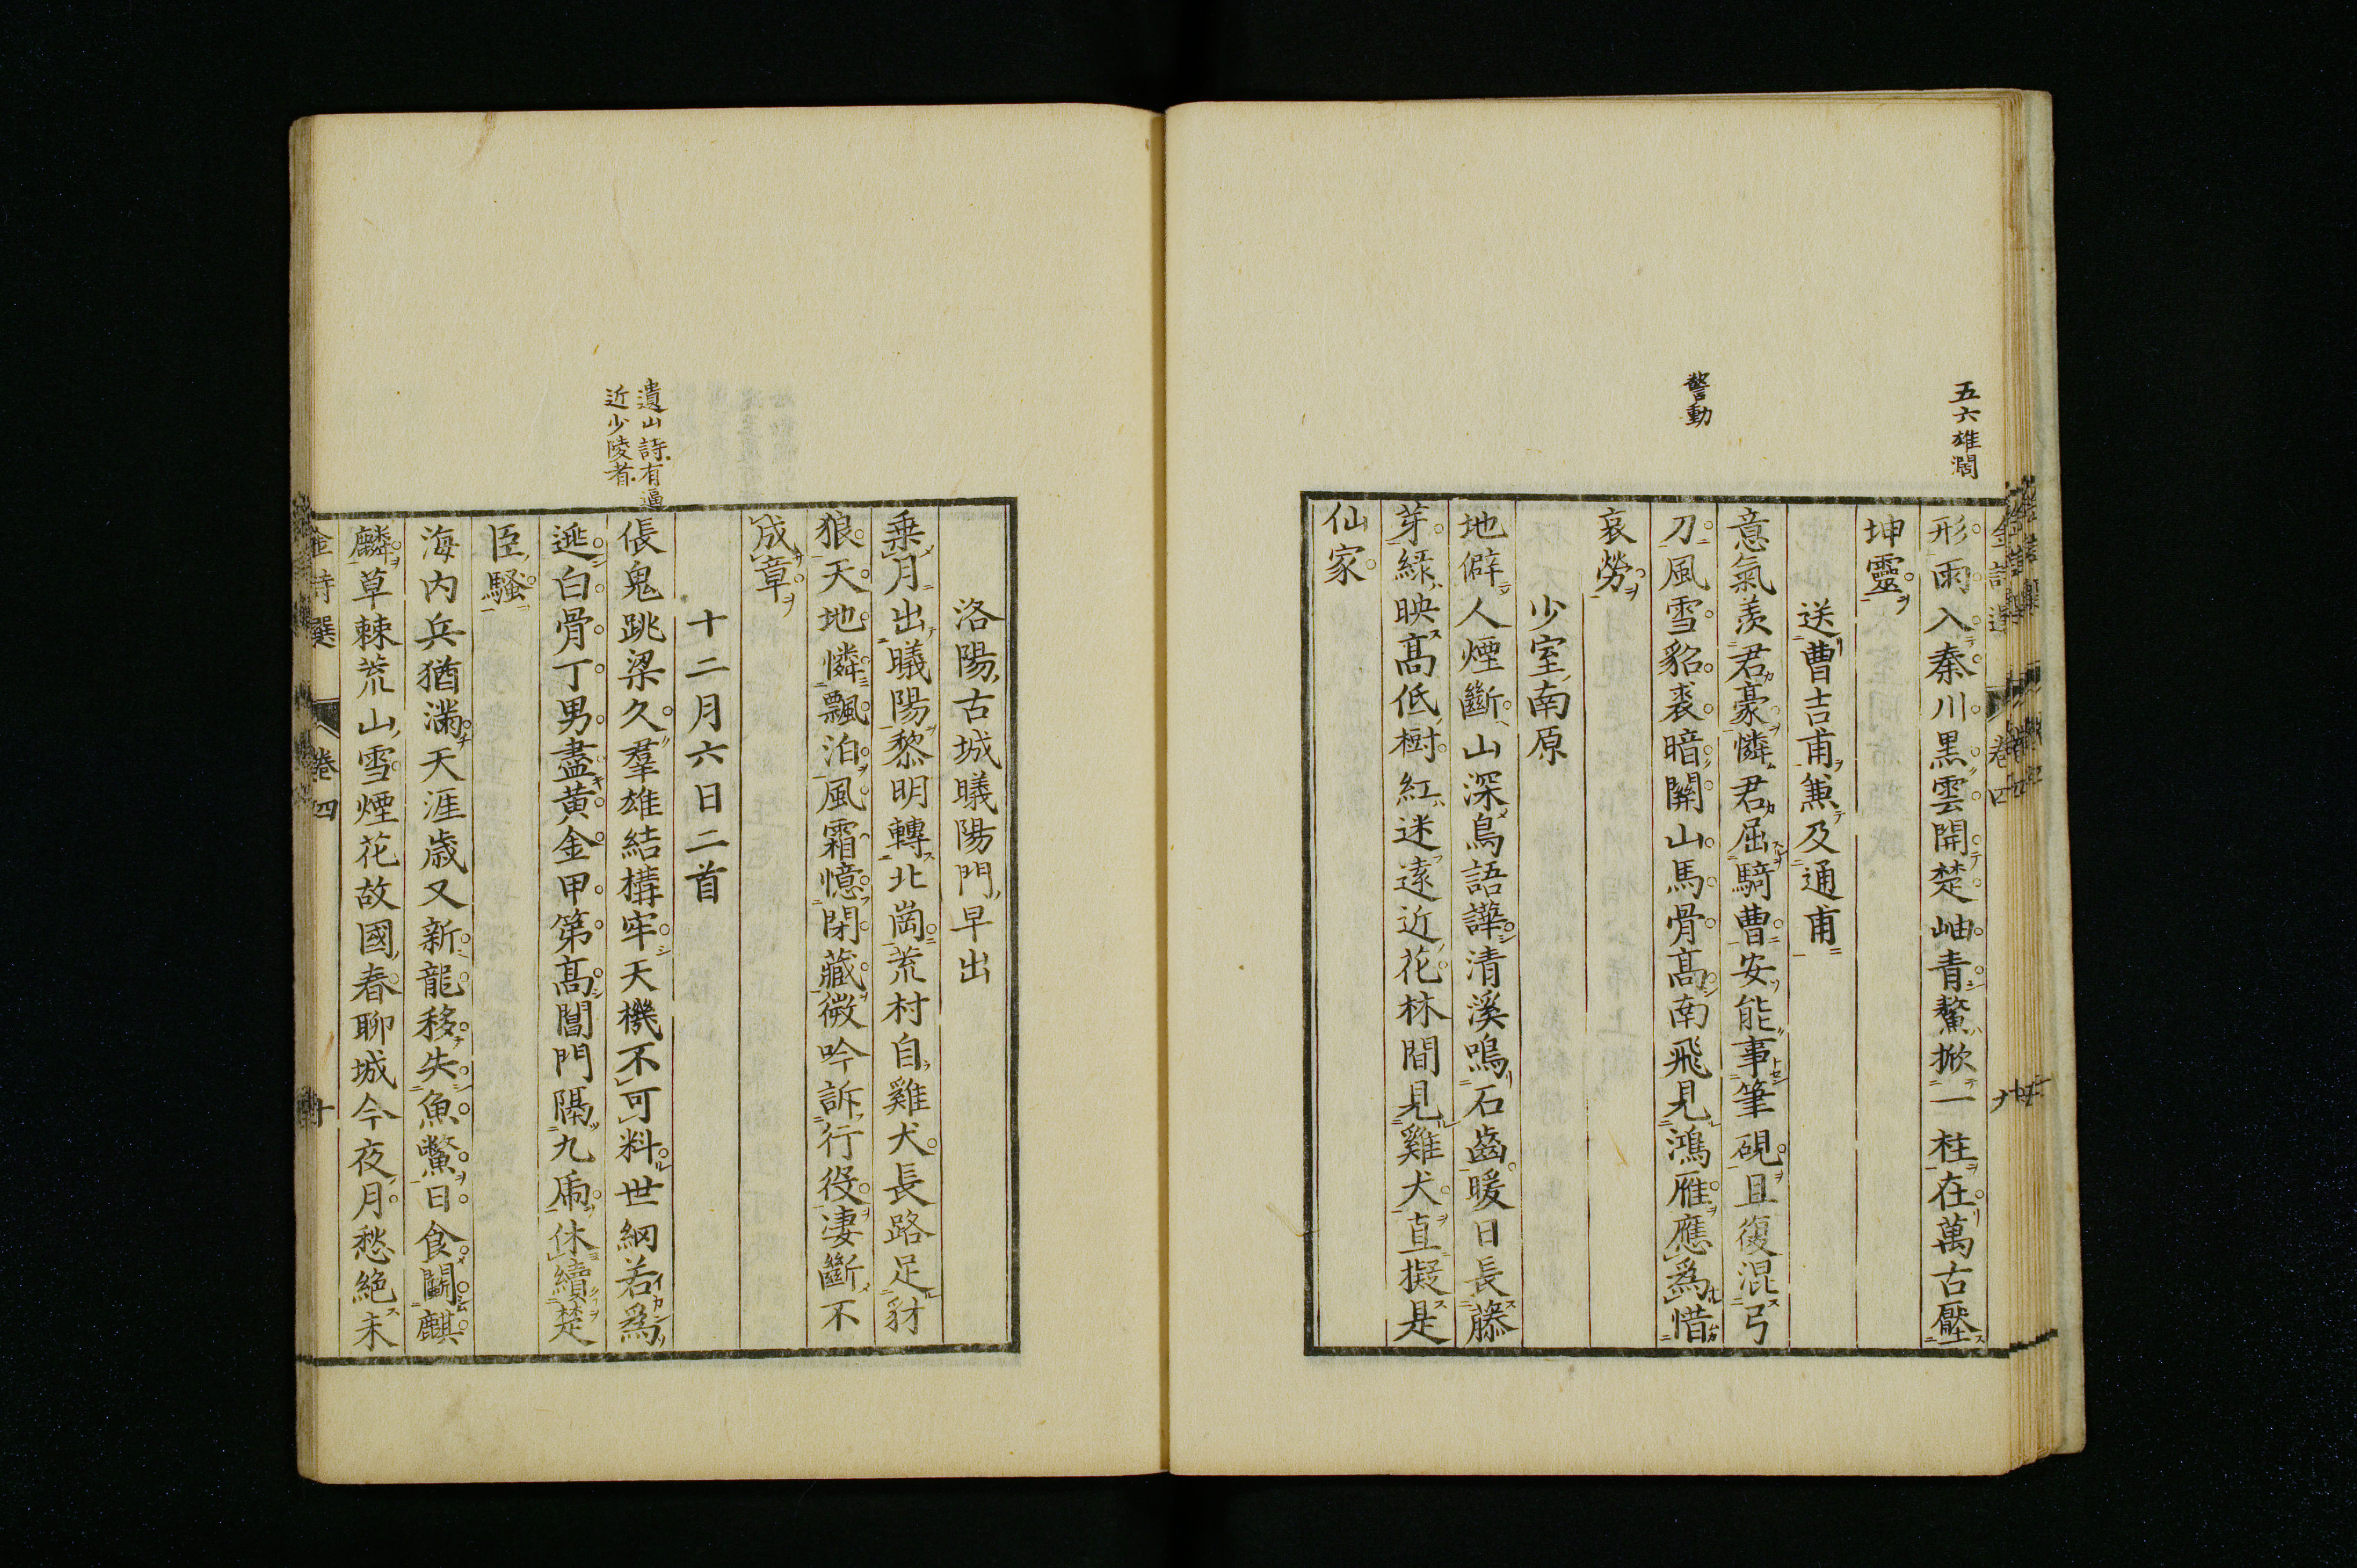 五六雄濶
形雨入秦川黒雲開楚岫青鰲掀一柱在萬古壓
坤靈
送曹吉甫兼及通甫
警動
意氣羨君豪憐君屈騎曹安能事筆硯且復混弓
刀風雪貂裘暗關山馬骨髙南飛見鴻雁應爲惜
哀勞
少室南原
地僻人煙斷山深鳥語譁清溪鳴石齒暖日長藤
芽緑映髙低樹紅迷遠近花林間見雞犬直擬是
仙家
洛陽古城曦陽門早出
乗月出曦陽黎明轉北崗荒村自雞犬長路足豺
狼天地憐飄泊風霜憶閉藏微吟訴行役凄斷不
成章
十二月六日二首
遺山詩有逼
近少陵者
倀鬼跳梁久羣雄結構牢天機不可料世網若爲
逃白骨丁男盡黄金甲第髙閶門隔九虎休續楚
臣騷
海内兵猶滿天涯歳又新龍移失魚鱉日食鬭麒
麟草棘荒山雪煙花故國春聊城今夜月愁絶未
金詩選 卷四 十